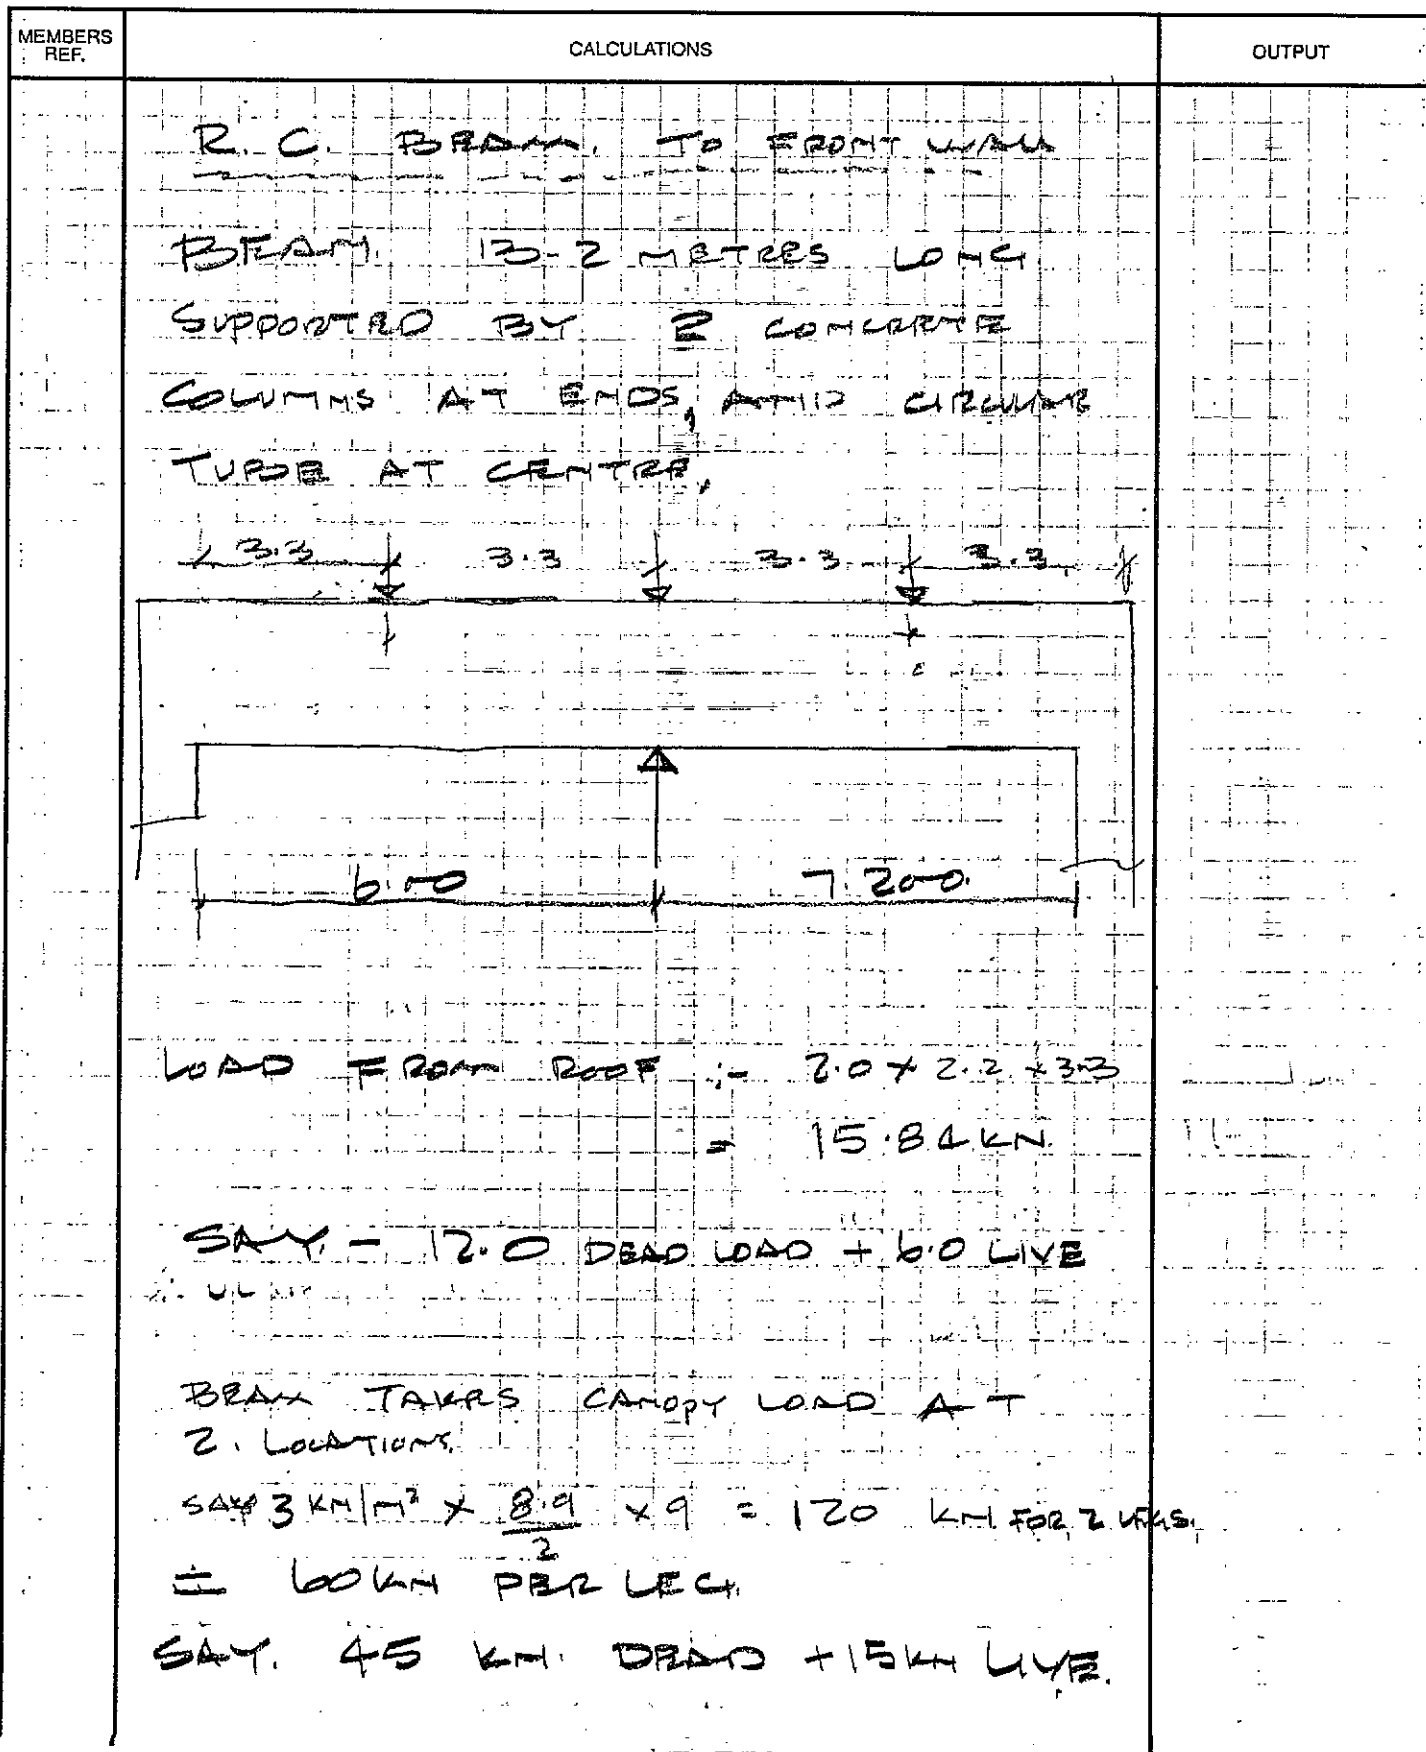 MEMBERS REF.
CALCULATIONS
OUTPUT
R. C. BEAM. TO FRONT WALL
BEAM 13.2 METRES LONG
SUPPORTED BY 2 CONCRETE
COLUMNS AT ENDS, AND CIRCULAR
TUBE AT CENTRE,
3.3 3.3 3.3 3.3
6.00 7.200
LOAD FROM ROOF :- 2.0 x 2.2 x 3.3
= 15.84 KN.
SAY. - 12.0 DEAD LOAD + 6.0 LIVE
BEAM TAKES CANOPY LOAD AT
2. LOCATIONS.
SAY 3 KN/M² x 8.9/2 x 9 = 120 KN FOR 2 LEGS.
≐ 60 KN PER LEG.
SAY. 45 KN. DEAD + 15 KN LIVE.